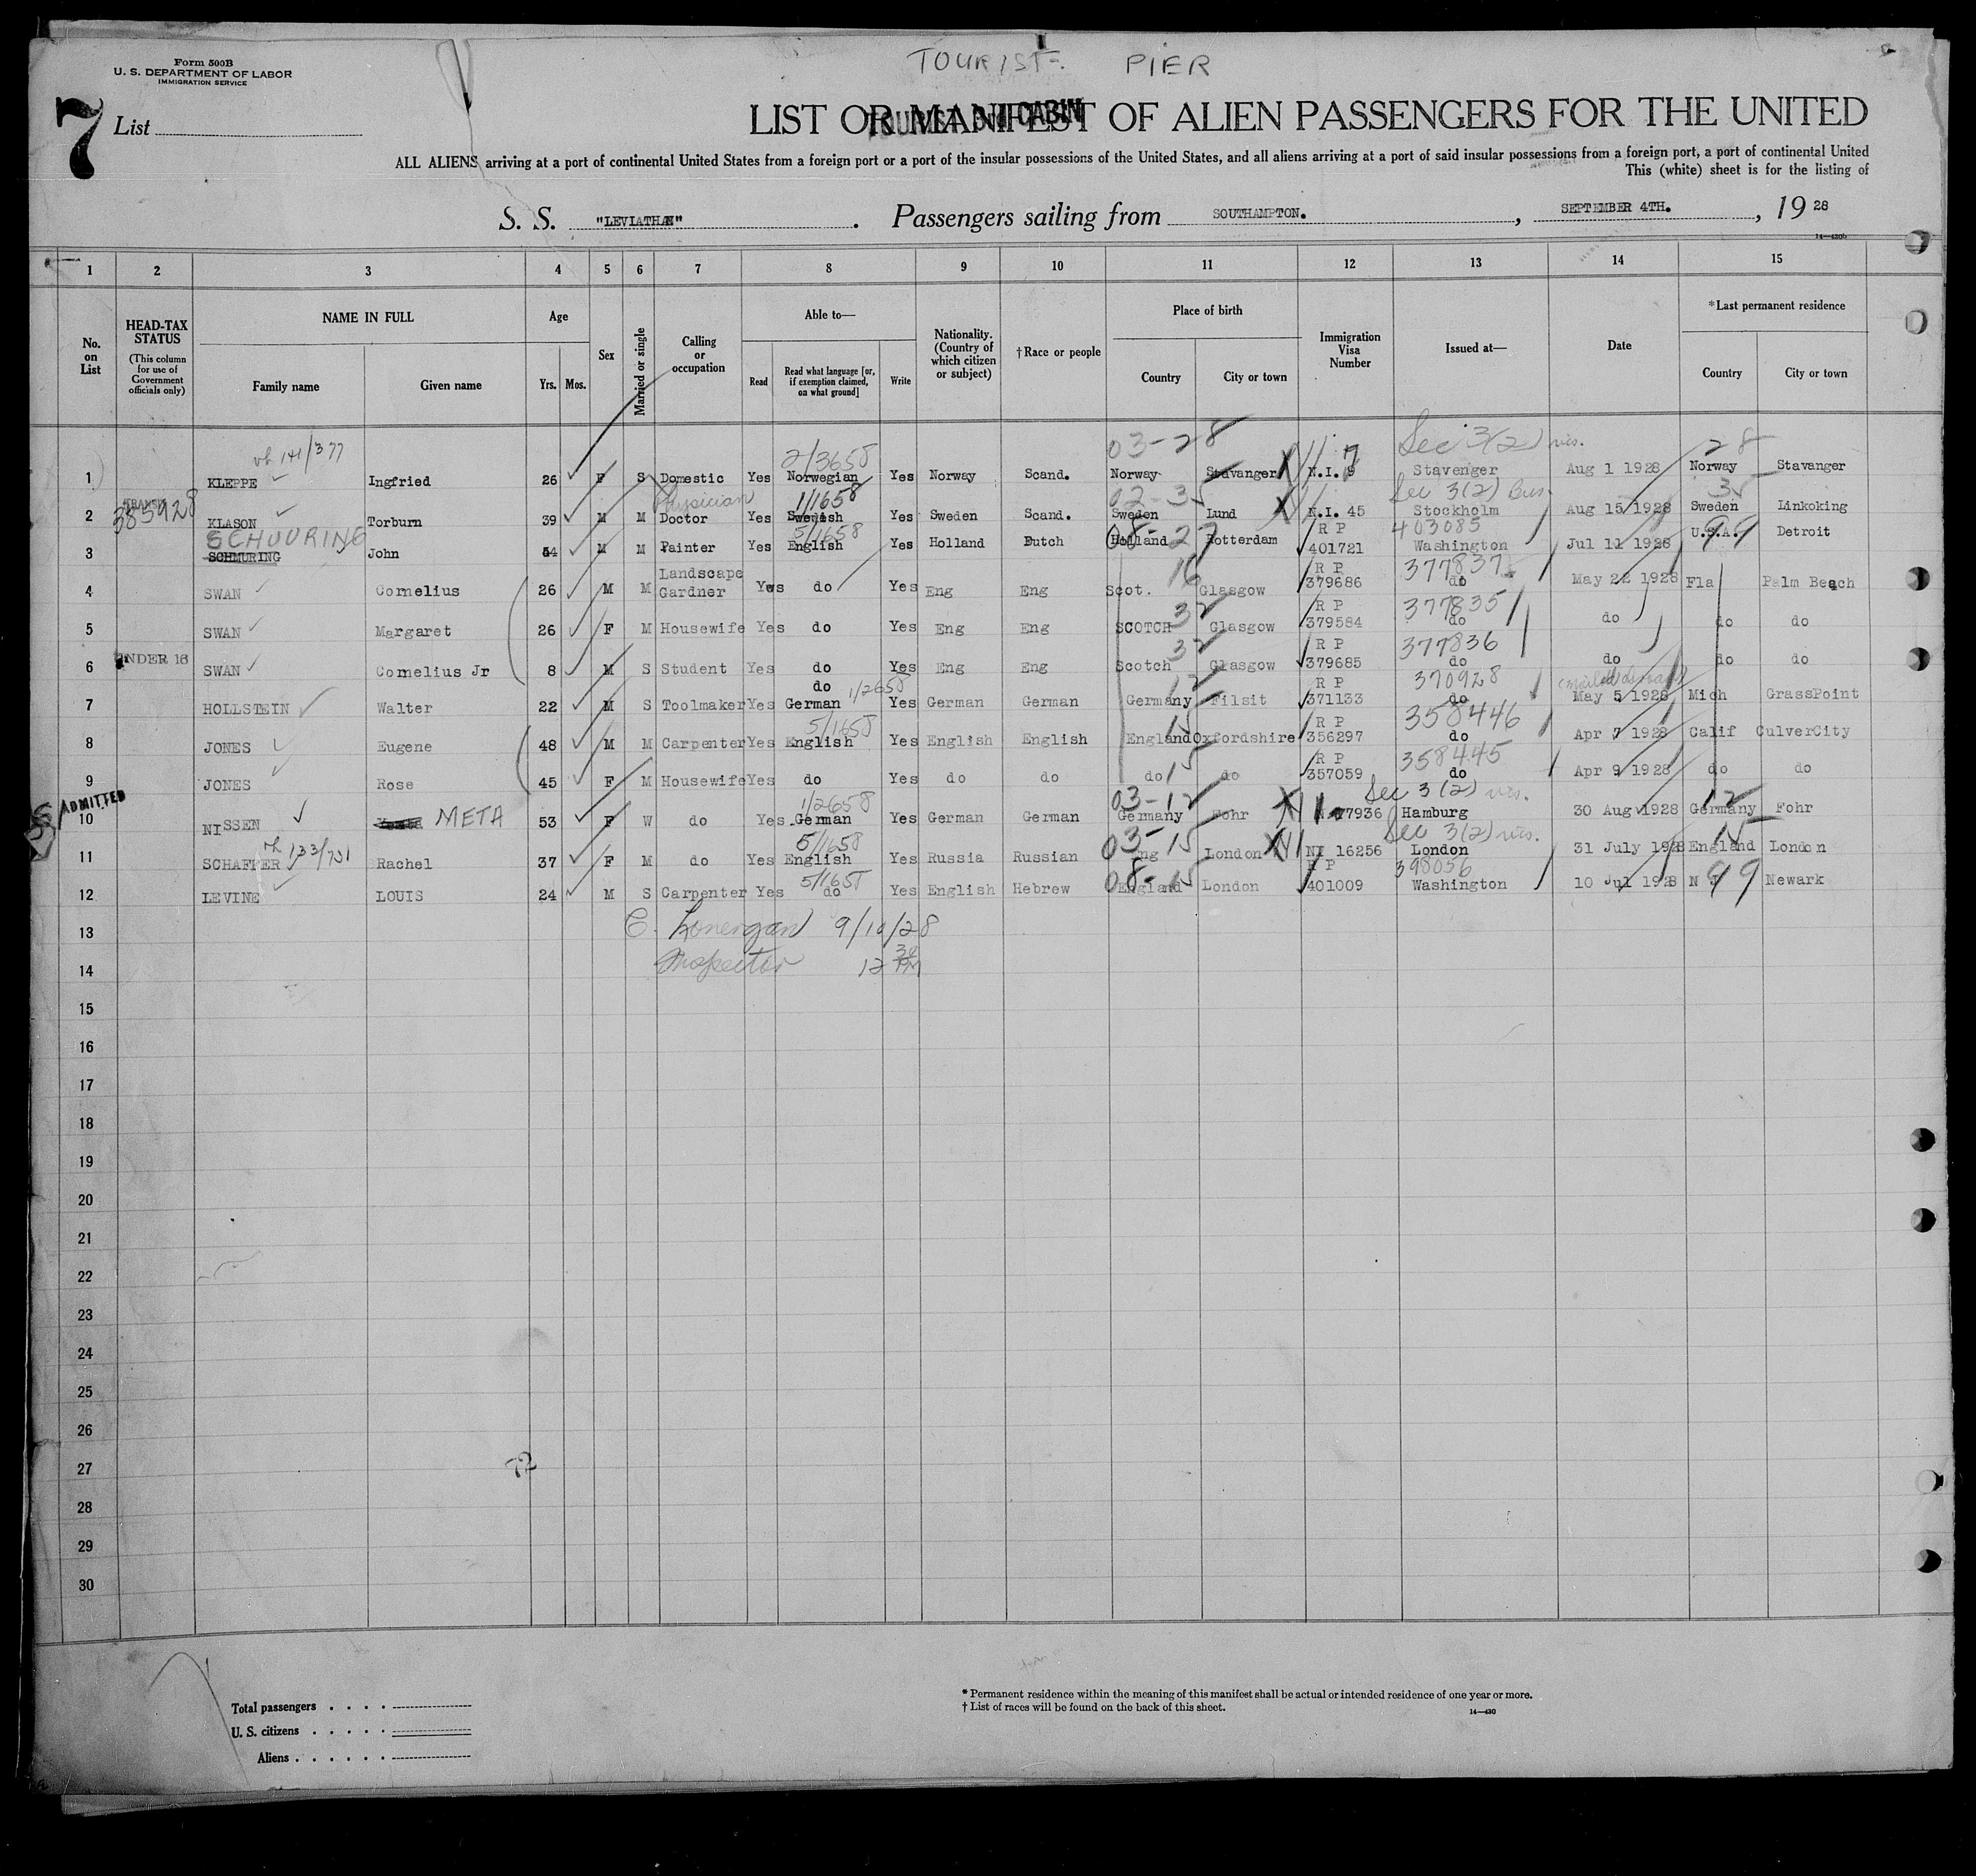 TOURIST- PIER
Form 500B
U. S. DEPARTMENT OF LABOR
IMMIGRATION SERVICE
7 List
LIST OR MANIFEST OF ALIEN PASSENGERS FOR THE UNITED
TOURIST 3rd CABIN
ALL ALIENS arriving at a port of continental United States from a foreign port or a port of the insular possessions of the United States, and all aliens arriving at a port of said insular possessions from a foreign port, a port of continental United
This (white) sheet is for the listing of
S. S. "LEVIATHAN". Passengers sailing from SOUTHAMPTON. , SEPTEMBER 4TH. , 19 28
14—430b
1 2 3 4 5 6 7 8 9 10 11 12 13 14 15
No. on List
HEAD-TAX STATUS (This column for use of Government officials only)
NAME IN FULL
Family name Given name
Age
Yrs. Mos.
Sex
Married or single
Calling or occupation
Able to—
Read Read what language [or, if exemption claimed, on what ground] Write
Nationality. (Country of which citizen or subject)
† Race or people
Place of birth
Country City or town
Immigration Visa Number
Issued at—
Date
* Last permanent residence
Country City or town
vh 141/377 2/3658 03-28 Sec 3(2) vis. 28
1 KLEPPE Ingfried 26 F S Domestic Yes Norwegian Yes Norway Scand. Norway Stavanger N.I. 9 7 Stavenger Aug 1 1928 Norway Stavanger
TRANSIT 385928 Physician 1/1658 02-35 Sec 3(2) Bus. 35
2 KLASON Torburn 39 M M Doctor Yes Swedish Yes Sweden Scand. Sweden Lund N.I. 45 Stockholm Aug 15 1928 Sweden Linkoking
SCHUURING 5/1658 08-27 R P 403085 99
3 SCHMURING John 54 M M Painter Yes English Yes Holland Dutch Holland Rotterdam 401721 Washington Jul 11 1928 U.S.A. Detroit
16 R P 377837
4 SWAN Cornelius 26 M M Landscape Gardner Yes do Yes Eng Eng Scot. Glasgow 379686 do May 22 1928 Fla Palm Beach
32 R P 377835
5 SWAN Margaret 26 F M Housewife Yes do Yes Eng Eng SCOTCH Glasgow 379584 do do do do
UNDER 16 32 R P 377836
6 SWAN Cornelius Jr 8 M S Student Yes do Yes Eng Eng Scotch Glasgow 379685 do do do do
do 1/2658 12 R P 370928
7 HOLLSTEIN Walter 22 M S Toolmaker Yes German Yes German German Germany Tilsit 371133 do May 5 1928 Mich GrassPoint
5/1658 15 R P 358446
8 JONES Eugene 48 M M Carpenter Yes English Yes English English England Oxfordshire 356297 do Apr 7 1928 Calif CulverCity
15 R P 358445
9 JONES Rose 45 F M Housewife Yes do Yes do do do do 357059 do Apr 9 1928 do do
ADMITTED 1/2658 03-12 Sec 3(2) vis. 12
10 NISSEN META 53 F W do Yes German Yes German German Germany Fohr 77936 Hamburg 30 Aug 1928 Germany Fohr
vh 133/751 5/1658 03-15 Sec 3(2) vis. 15
11 SCHAFFER Rachel 37 F M do Yes English Yes Russia Russian Eng London NI 16256 London 31 July 1928 England London
5/1658 08-15 R P 398056 99
12 LEVINE LOUIS 24 M S Carpenter Yes do Yes English Hebrew England London 401009 Washington 10 Jul 1928 N J Newark
13 C. Lonergan 9/10/28
14 Inspector 12 30 PM
15
16
17
18
19
20
21
22
23
24
25
26
27
72
28
29
30
Total passengers . . . .
U. S. citizens . . . . .
Aliens . . . . . .
* Permanent residence within the meaning of this manifest shall be actual or intended residence of one year or more.
† List of races will be found on the back of this sheet.
14—430